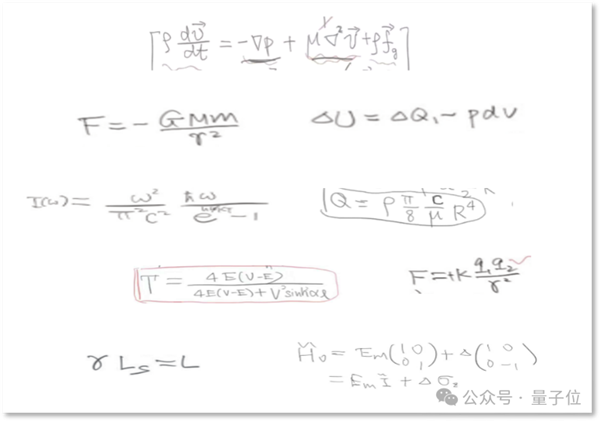 ρ dv⃗/dt = -∇p + μ∇²v⃗ + ρf⃗g
F = - GMm/r²
ΔU = ΔQ, - pdv
I(ω) = ω²/π²c² ħω/e -1
Q = ρ π/8 c/μ R⁴
T = 4E(V-E)/4E(V-E)+V²sinh²αl
F = +k q₁q₂/r²
γ L_S = L
H₀ = Em(1 0 0 1) + Δ(1 0 0 -1)
= Em I⃗ + Δ σz
公众号 · 量子位